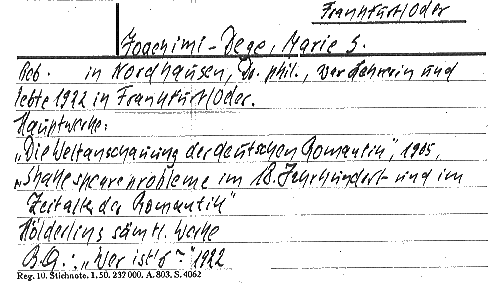 Frankfurt/Oder
Joachimi-Dege, Marie S.
Geb. in Nordhausen, Dr. phil., war Lehrerin und
lebte 1922 in Frankfurt/Oder.
Hauptwerke:
„Die Weltanschauung der deutschen Romantik", 1905,
„Shakespeareprobleme im 18. Jahrhundert und im
Zeitalter der Romantik"
Hölderlins sämtl. Werke
B.Q.: „Wer ist's?" 1922
Reg. 10. Stichnote. 1. 50. 237 000. A. 803. S. 4062